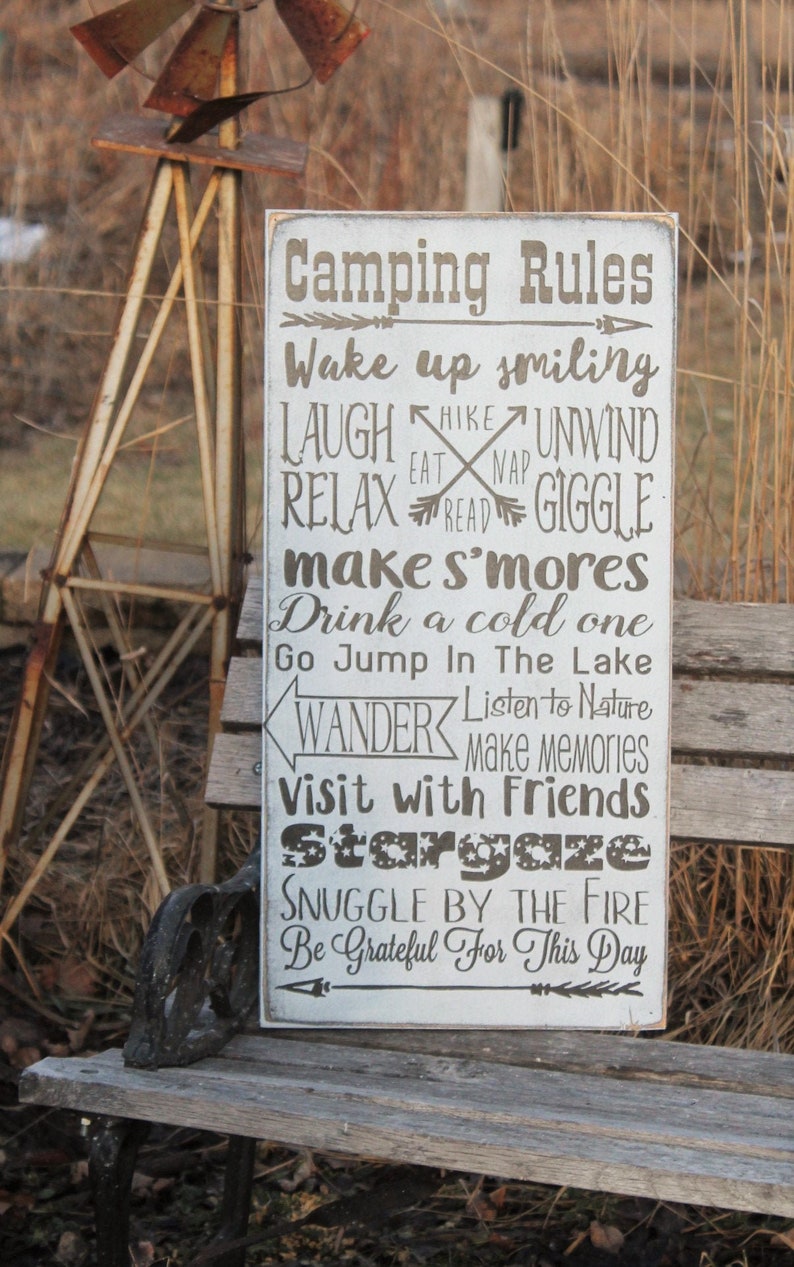 Camping Rules
Wake up smiling
LAUGH HIKE UNWIND
EAT NAP
RELAX READ GIGGLE
make s'mores
Drink a cold one
Go Jump In The Lake
WANDER Listen to Nature
make memories
Visit with Friends
Stargaze
SNUGGLE BY THE FIRE
Be Grateful For This Day